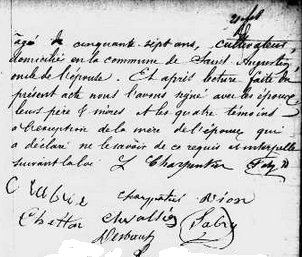 âgé de cinquante sept ans, cultivateur
domicilié en la commune de Saint Augustin
oncle de l'épouse. Et après lecture faite du
présent acte nous l'avons signé avec les époux
leurs père & mères et les quatre témoins
à l'exception de la mère de l'époux qui
a déclaré ne le savoir de ce requis et interpellé
suivant la loi Charpentier
Charpentier Dion
Chevallier Fabry